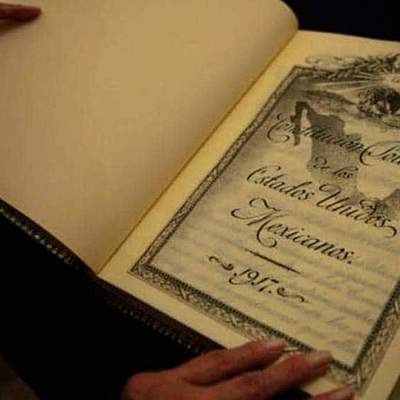 Constitución
de los
Estados Unidos
Mexicanos.
1917.